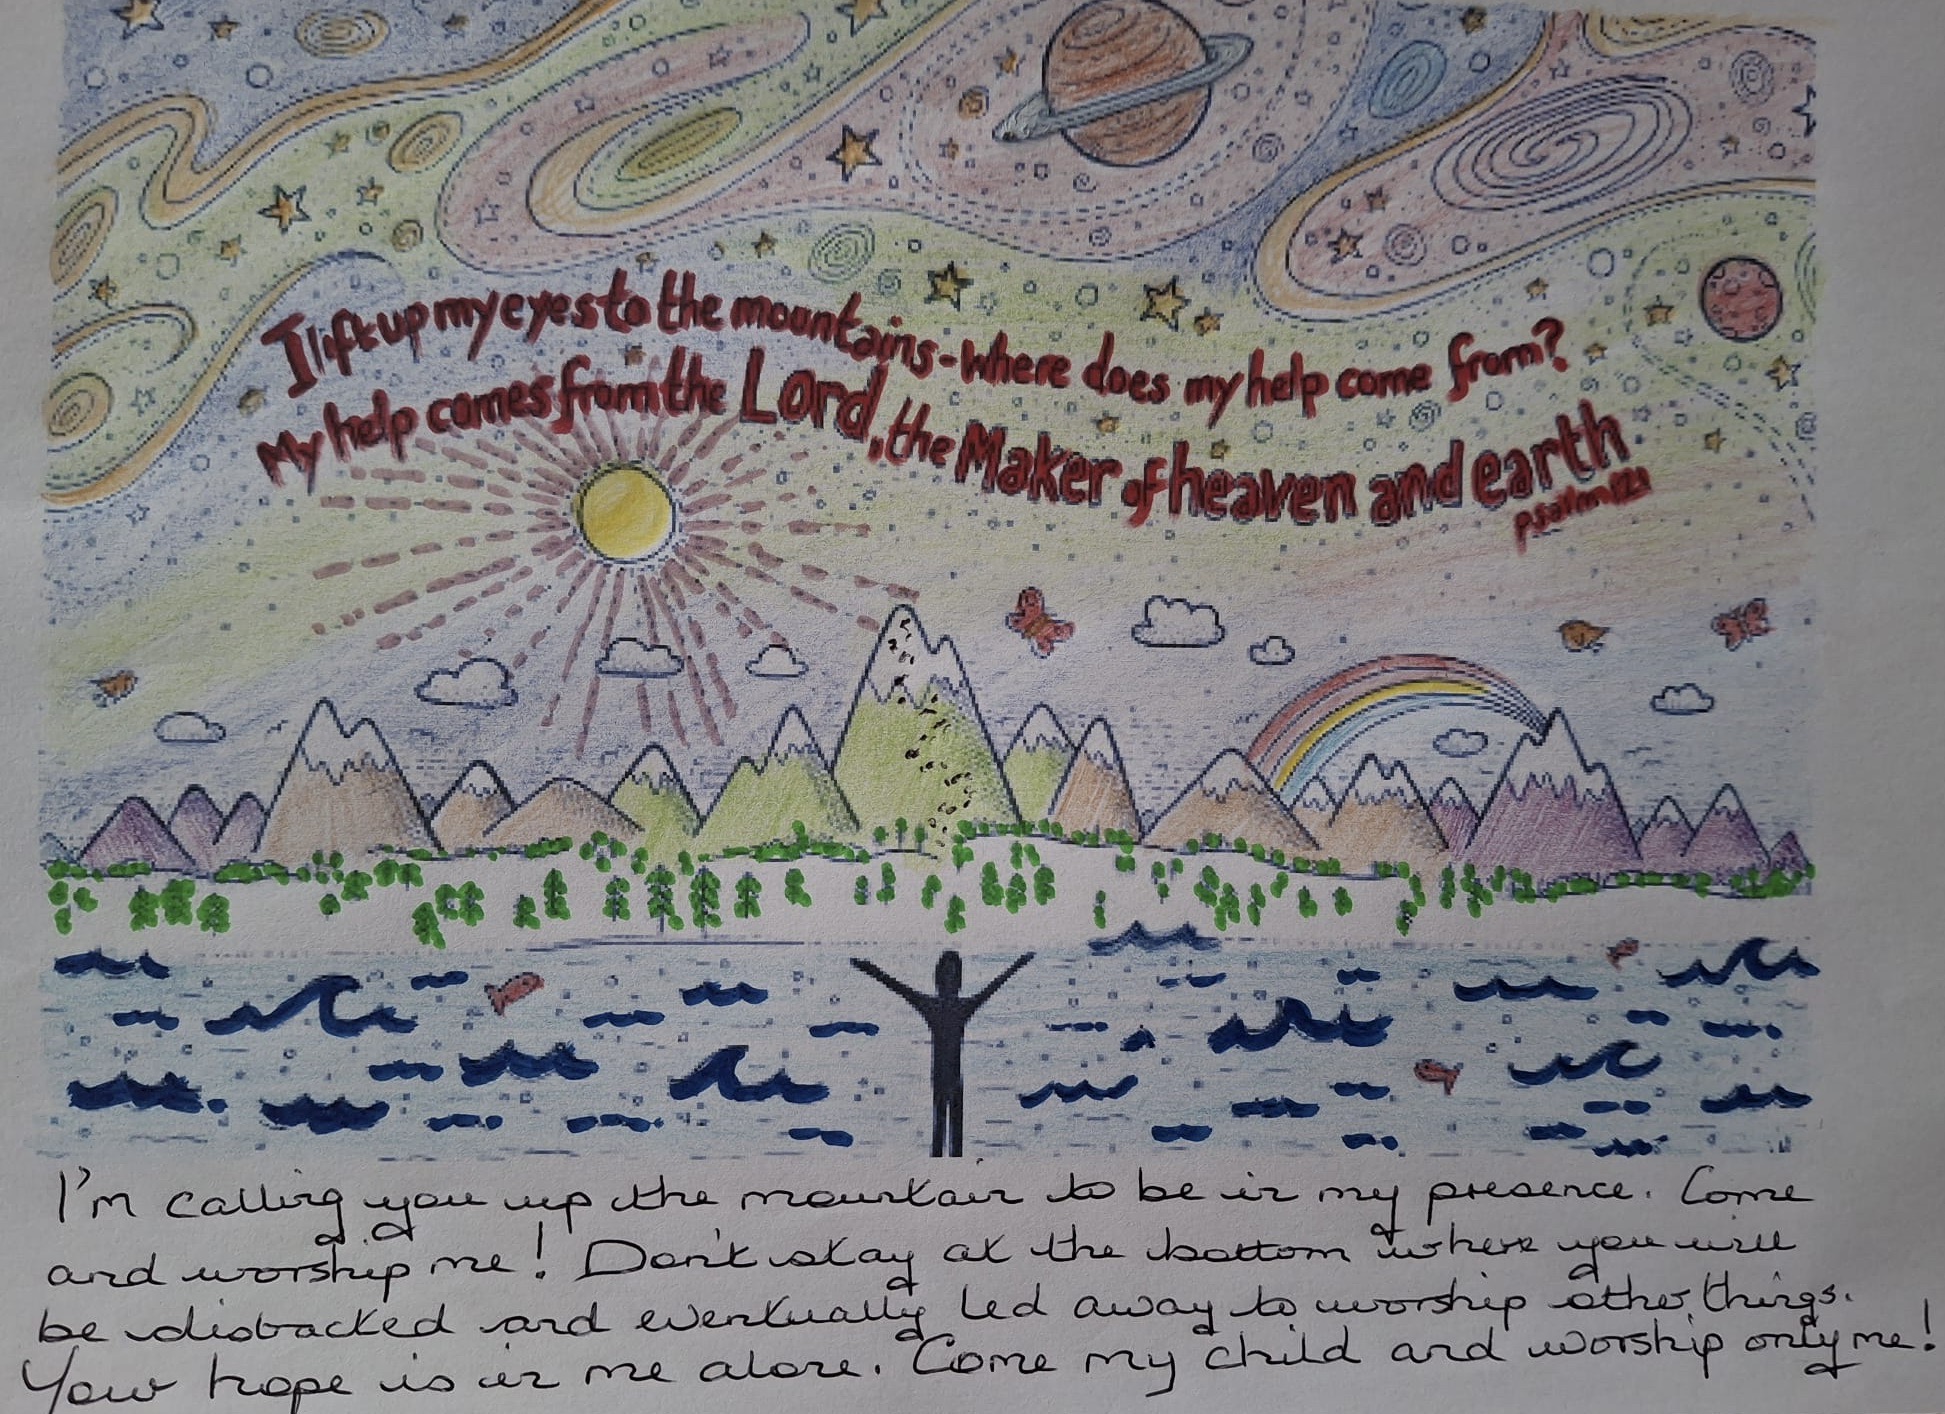 I lift up my eyes to the mountains - where does my help come from?
My help comes from the Lord, the Maker of heaven and earth
psalm 121
I'm calling you up the mountain to be in my presence. Come
and worship me! Don't stay at the bottom where you will
be distracted and eventually led away to worship other things.
Your hope is in me alone. Come my child and worship only me!